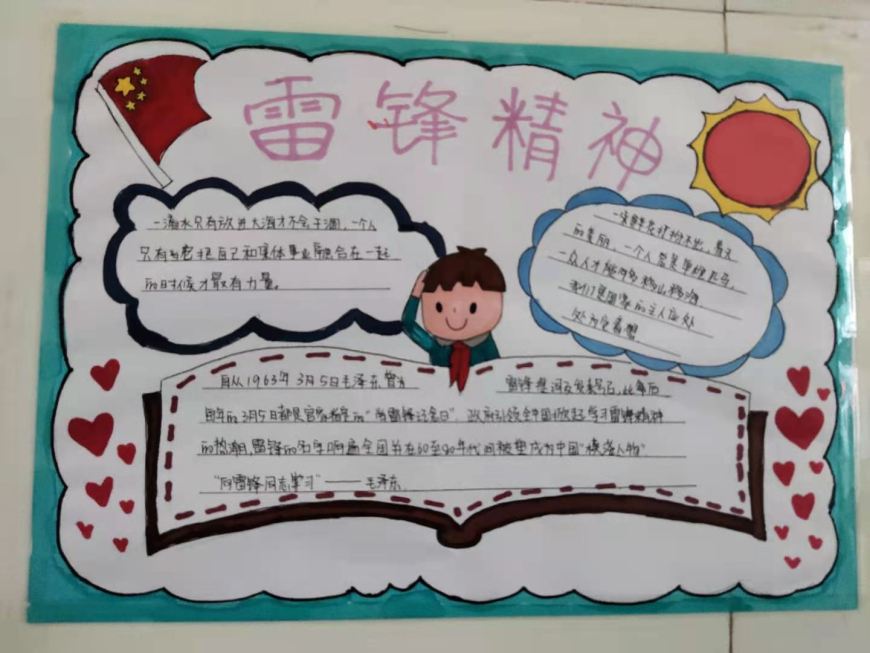 雷锋精神
一滴水只有放进大海才不会干涸,一个人
只有当他把自己和集体事业融合在一起
的时候才最有力量。
一朵鲜花打扮不出春天
的美丽,一个人总是单枪匹马,
众人才能移山移海
我们是国家的主人应处
处为党着想
自从1963年3月5日毛泽东曾为 雷锋题词发表起,此年后
每年的3月5日都是官方指定的"向雷锋纪念日",政府引领全中国掀起学习雷锋精神
的热潮,雷锋的名字响遍全国并在60至90年代间被塑成为中国"模范人物"
"向雷锋同志学习" —— 毛泽东.